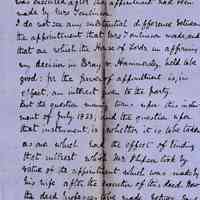 was executed after the appointment had been
made by Mrs Tomlinson.
I do not see any substantial difference between
the appointment that Mrs Tomlinson made and
that on which the House of Lords in affirming
my decision in Bray v Hammersley, held to be
good: for the power of appointment is, in
effect, an interest given to the party.
But the question mainly turns upon this instru-
ment of July 1823; and the question upon
that instrument is whether it is to be taken
as one which had the effect of binding
that interest which Mr Phipson took by
virtue of the appointment which was made by
his wife after the execution of this deed. Now
the deed